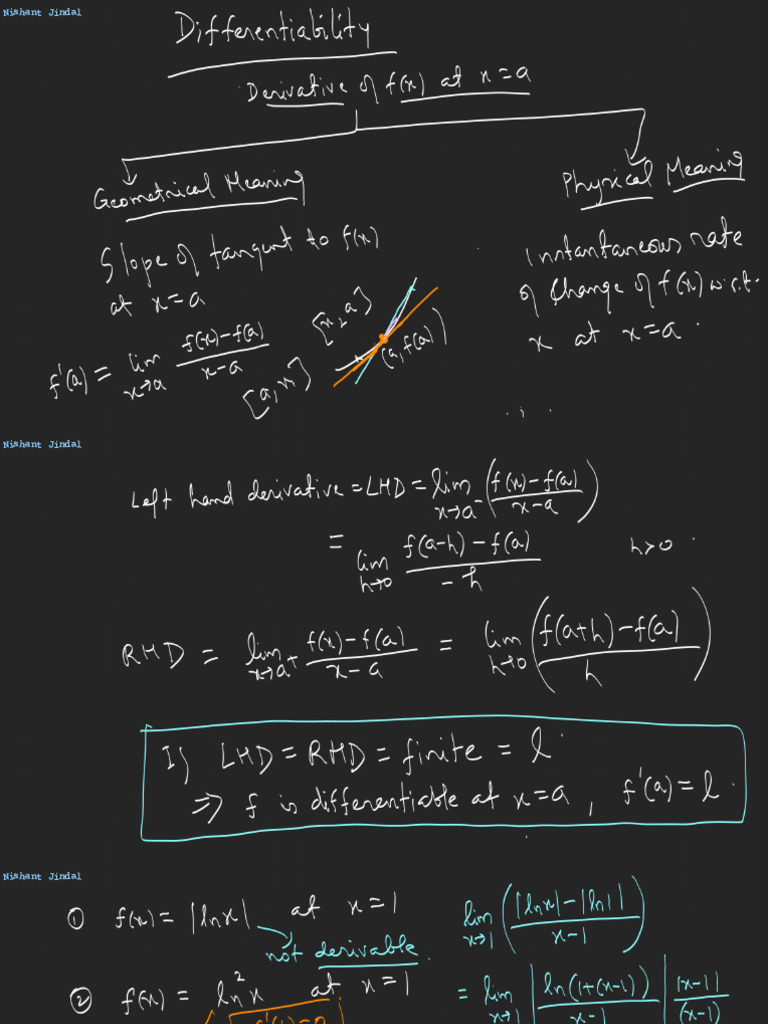 Nishant Jindal
Differentiability
Derivative of f(x) at x=a
Geometrical Meaning
Physical Meaning
Slope of tangent to f(x)
at x=a
f'(a) = lim x→a (f(x)-f(a))/(x-a)
[x₂, a]
[a, x₁]
(a, f(a))
instantaneous rate
of change of f(x) w.r.t.
x at x=a.
Nishant Jindal
Left hand derivative = LHD = lim x→a⁻ ((f(x)-f(a))/(x-a))
= lim h→0 (f(a-h)-f(a))/(-h) h>0.
RHD = lim x→a⁺ (f(x)-f(a))/(x-a) = lim h→0 ((f(a+h)-f(a))/h)
If LHD = RHD = finite = l.
⇒ f is differentiable at x=a, f'(a) = l.
Nishant Jindal
① f(x) = |lnx| at x=1 lim x→1 ((|lnx|-|ln1|)/(x-1))
not derivable.
② f(x) = ln²x at x=1 = lim x→1 |ln(1+(x-1))/(x-1)| |x-1|/(x-1)